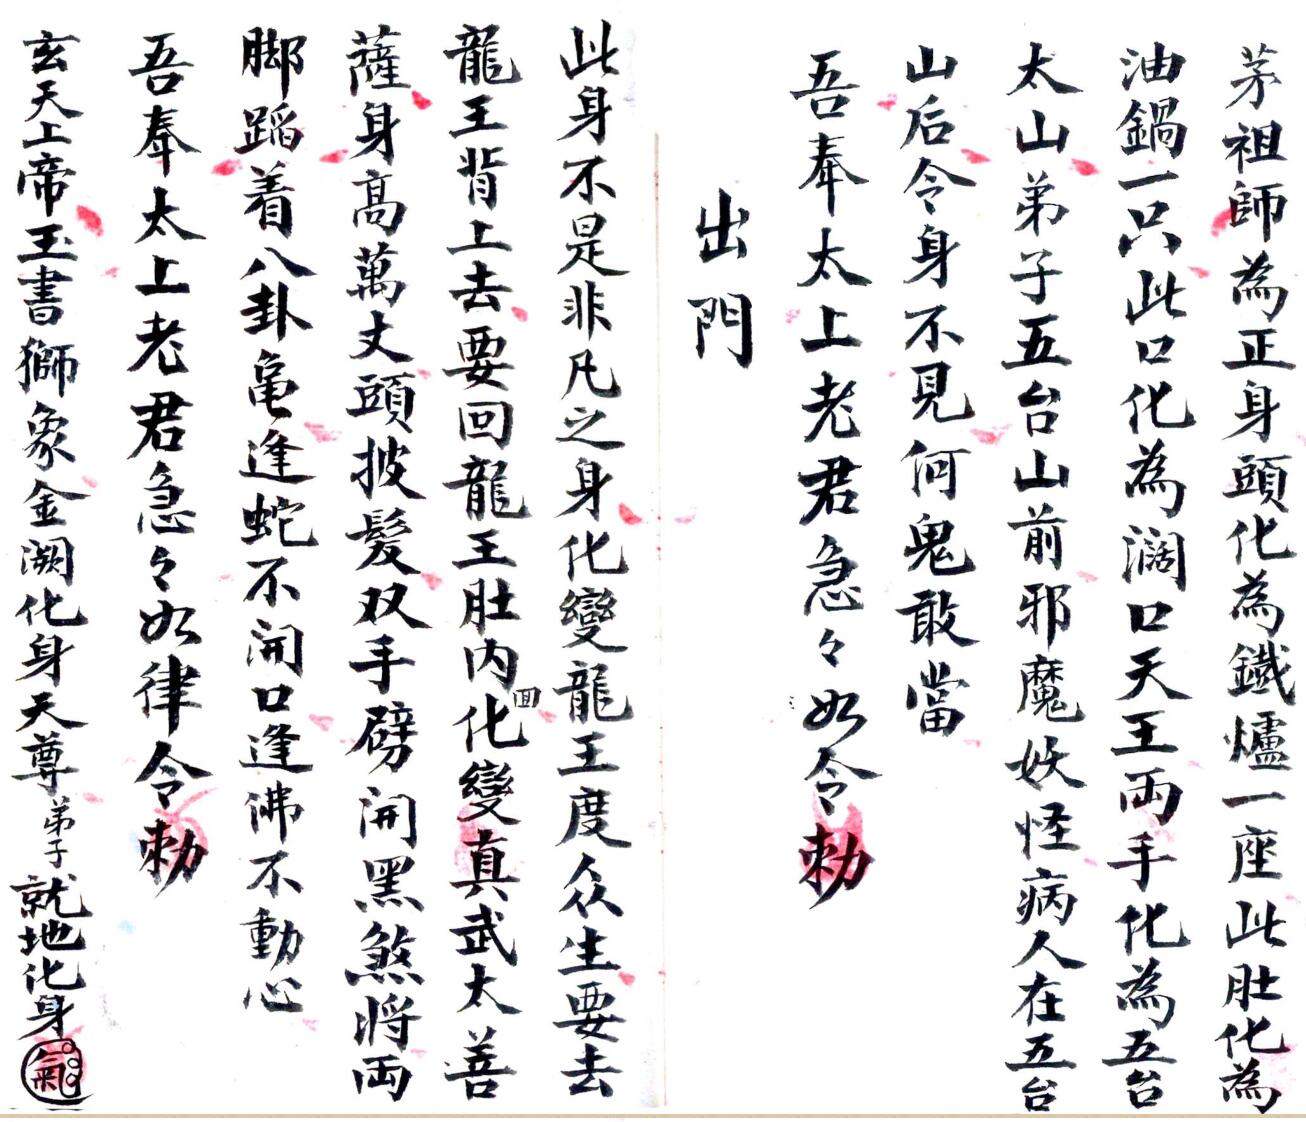 茅祖師為正身頭化為鐵爐一座此肚化為
油鍋一只此口化為濶口天王両手化為五台
太山弟子五台山前邪魔妖怪病人在五台
山后令身不見何鬼敢當
吾奉太上老君急々如令勅
出門
此身不是非凡之身化變龍王度众生要去
龍王背上去要回龍王肚内回化變真武太善
薩身高萬丈頭披髮双手劈開黑煞将両
脚蹈着八卦亀逢蛇不開口逢佛不動心
吾奉太上老君急々如律令勅
玄天上帝玉書獅象金闕化身天尊弟子就地化身氣